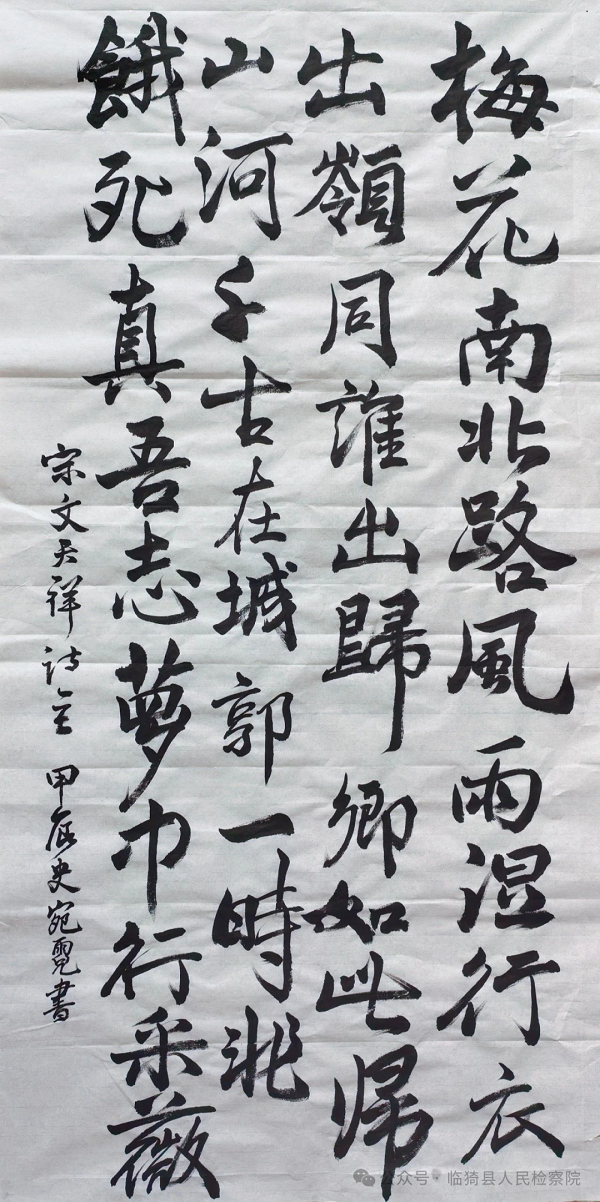 梅花南北路風雨湿行衣
出嶺同誰出歸鄉如此帰
山河千古在城郭一時非
餓死真吾志夢中行采薇
宋文天祥诗 甲辰史宛霓書
公众号·临猗县人民检察院